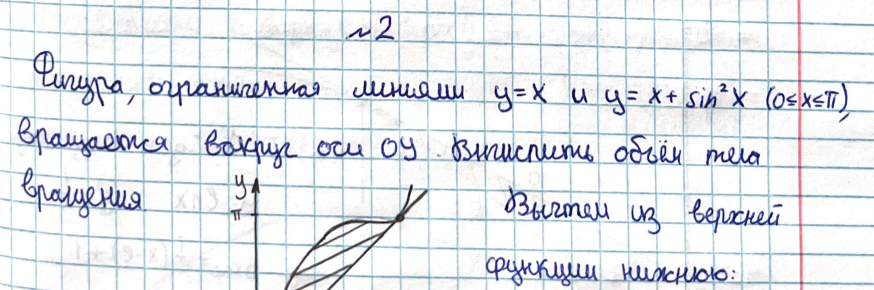 №2
Фигура, ограниченная линиями y=x и y=x+sin²x (0≤x≤π),
вращается вокруг оси OY. Вычислить объём тела
вращения.
y
π
Вычтем из верхней
функции нижнюю: